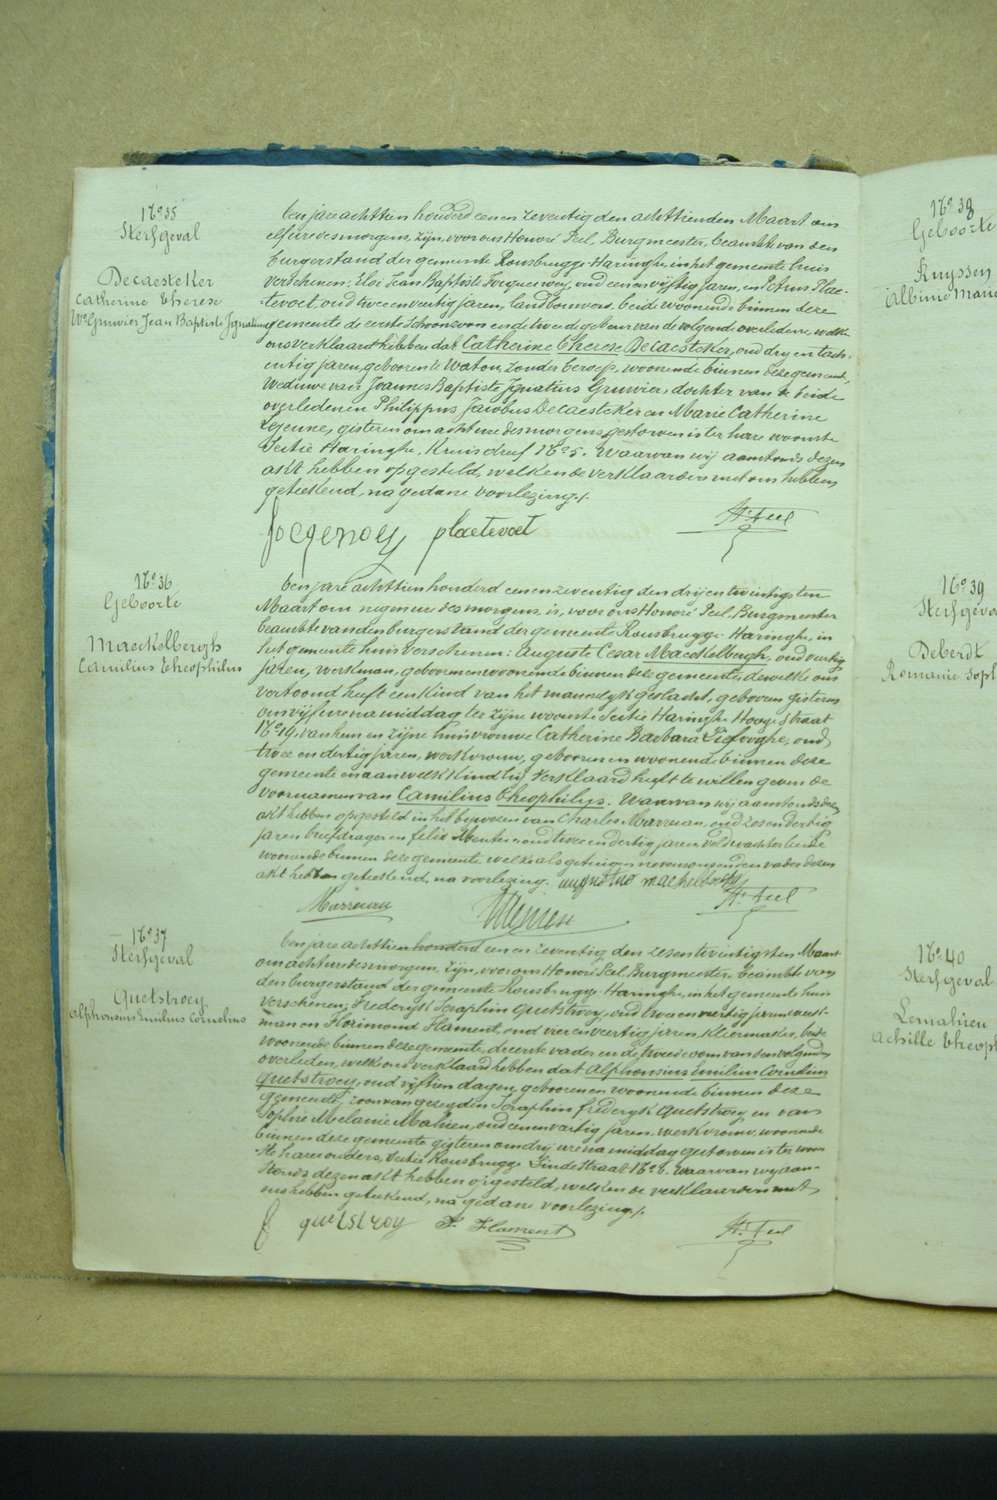 No 35
Sterfgeval
Decaesteker
Catherine Therese
We Gruwier Jean Baptiste Ignatius
Den jare achttien honderd een en zeventig den achttienden Maart om
elf ure des morgens, zijn, voor ons Honoré Peel, Burgmeester, beambte van den
burgerstand der gemeente Rousbrugge-Haringhe, in het gemeente huis
verschenen: Eloi Jean Baptiste oud een en vijftig jaren, en Petrus Plae-
tevoet oud twee en veertig jaren, landbouwers, beide woonende binnen deze
gemeente de eerste schoonzoon en de tweede gebuur van de volgende overledene, welke
ons verklaard hebben dat Catherine Therese Decaesteker, oud dry en tach-
entig jaren, geboren te Watou, zonder beroep, woonende binnen deze gemeente,
Weduwe van Joannes Baptiste Ignatius Gruwier, dochter van de beide
overledenen Philippus Jacobus Decaesteker en Marie Catherine
Lejeune, gisteren om acht ure des morgens gestorven is ter hare woonste
Sectie Haringhe, Kruisdreef No 5. Waarvan wij aanstonds dezen
akt hebben opgesteld, welken de verklaarders met ons hebben
geteekend, na gedane voorlezing./.
plaetevoet
Hre Peel
No 36
Geboorte
Maeckelbergh
Camilius Theophilus
Den jare achttien honderd een en zeventig den drij en twintigsten
Maart om negen ure des morgens, is, voor ons Honoré Peel, Burgmeester
beambte van den burgerstand der gemeente Rousbrugge-Haringhe, in
het gemeente huis verschenen: Auguste Cesar Maeckelbergh, oud veertig
jaren, werkman, geboren en woonende binnen deze gemeente, dewelke ons
vertoond heeft een kind van het mannelyk geslacht, geboren gisteren
om vijf ure namiddag ter zijne woonste Sectie Haringhe Hooge straat
No 19, van hem en zijne huisvrouwe Catherine Barbara oud
twee en dertig jaren, werkvrouw, geboren en woonende binnen deze
gemeente en aan welk kind hij verklaard heeft te willen geven de
voornamen van Camilius Theophilus. Waarvan wij aanstonds dezen
akt hebben opgesteld in het bijwezen van Charles Marreau, oud zes en dertig
jaren briefdrager en felix oud twee en dertig jaren veldwachter beide
woonende binnen deze gemeente welke als getuigen nevens ons en den vader dezen
akt hebben geteekend, na voorlezing.
Marreau
Hre Peel
No 37
Sterfgeval
Quetstroey
Alphonsius Emilius Cornelius
Den jare achttien honderd een en zeventig den zes en twintigsten Maart
om acht ure des morgens zijn, voor ons Honoré Peel Burgmeester, beambte van
den burgerstand der gemeente Rousbrugge-Haringhe, in het gemeente huis
verschenen; Frederyk Seraphin Quetstroey, oud twee en veertig jaren werk-
man en Florimond Flament, oud vier en veertig jaren, kleermaker, beide
woonende binnen deze gemeente, de eerste vader en de tweede oom van den volgenden
overleden, welke ons verklaard hebben dat Alphonsius Emilius Cornelius
Quetstroey, oud vijftien dagen, geboren en woonende binnen deze
gemeente, zoon van gezegden Seraphin frederyk Quetstroey en van
Sophie Melanie Mahieu, oud een en veertig jaren, werkvrouw, woonende
binnen deze gemeente gisteren om drij ure namiddag gestorven is ter woon-
ste harer ouders, Sectie Rousbrugge Lindestraat No 8. Waarvan wij aan-
stonds dezen akt hebben opgesteld, welken de verklaarders met
ons hebben geteekend, na gedane voorlezing./.
f quetstroy
F. Flament
Hre Peel
No 38
Geboorte
Ruyssen
Albinie Marie
No 39
Sterfgeva
Deberdt
Romanie Soph
No 40
Sterfgeval
Lemahieu
Achille Theoph